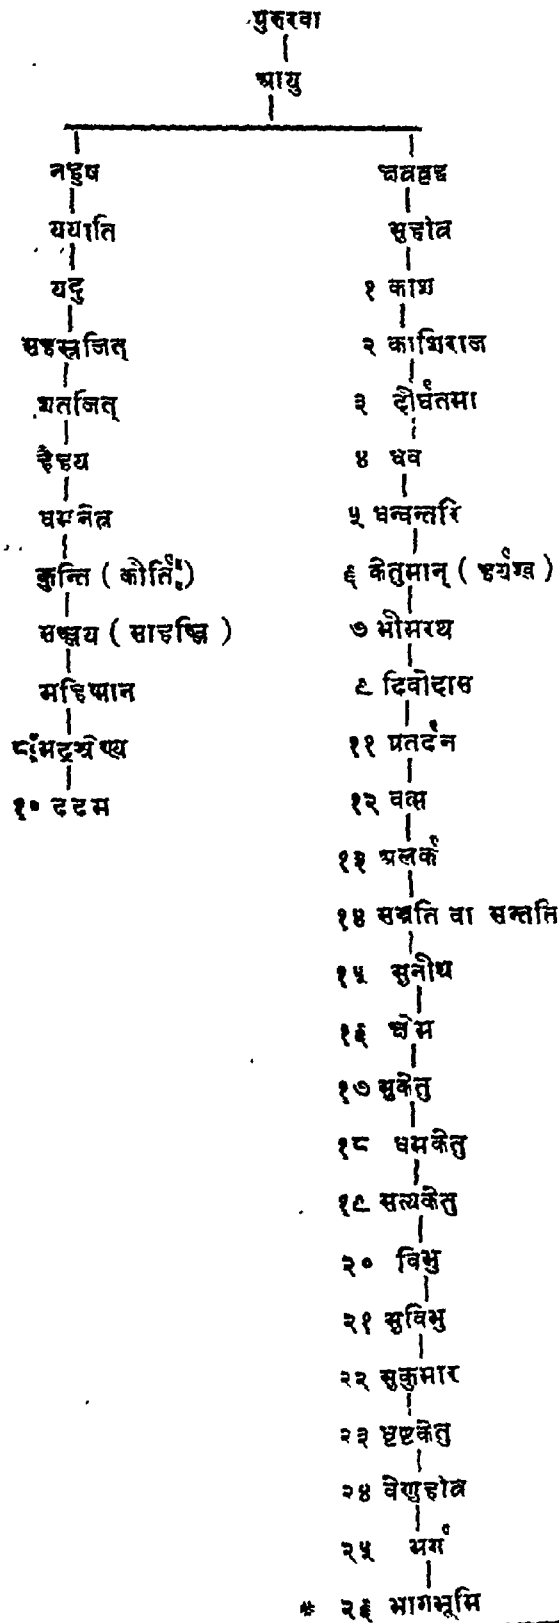 पुरुरवा
आयु
नहुष
ययाति
यदु
सहस्रजित्
शतजित्
हैहय
धमनेत्र
कुन्ति ( कीर्ति )
सञ्जय ( साहञ्जि )
महिष्मान
८ भद्रश्रेण्य
१० ददम
क्षत्रवृद्ध
सुहोत्र
१ काश
२ काशिराज
३ दीर्घतमा
४ धव
५ धन्वन्तरि
६ केतुमान् ( हर्यश्व )
७ भीमरथ
९ दिवोदास
११ प्रतर्दन
१२ वत्स
१३ अलर्क
१४ सन्नति वा सन्तति
१५ सुनीथ
१६ क्षेम
१७ सुकेतु
१८ धमकेतु
१९ सत्यकेतु
२० विभु
२१ सुविभु
२२ सुकुमार
२३ धृष्टकेतु
२४ वेणुहोत्र
२५ भर्ग
* २६ भागभूमि